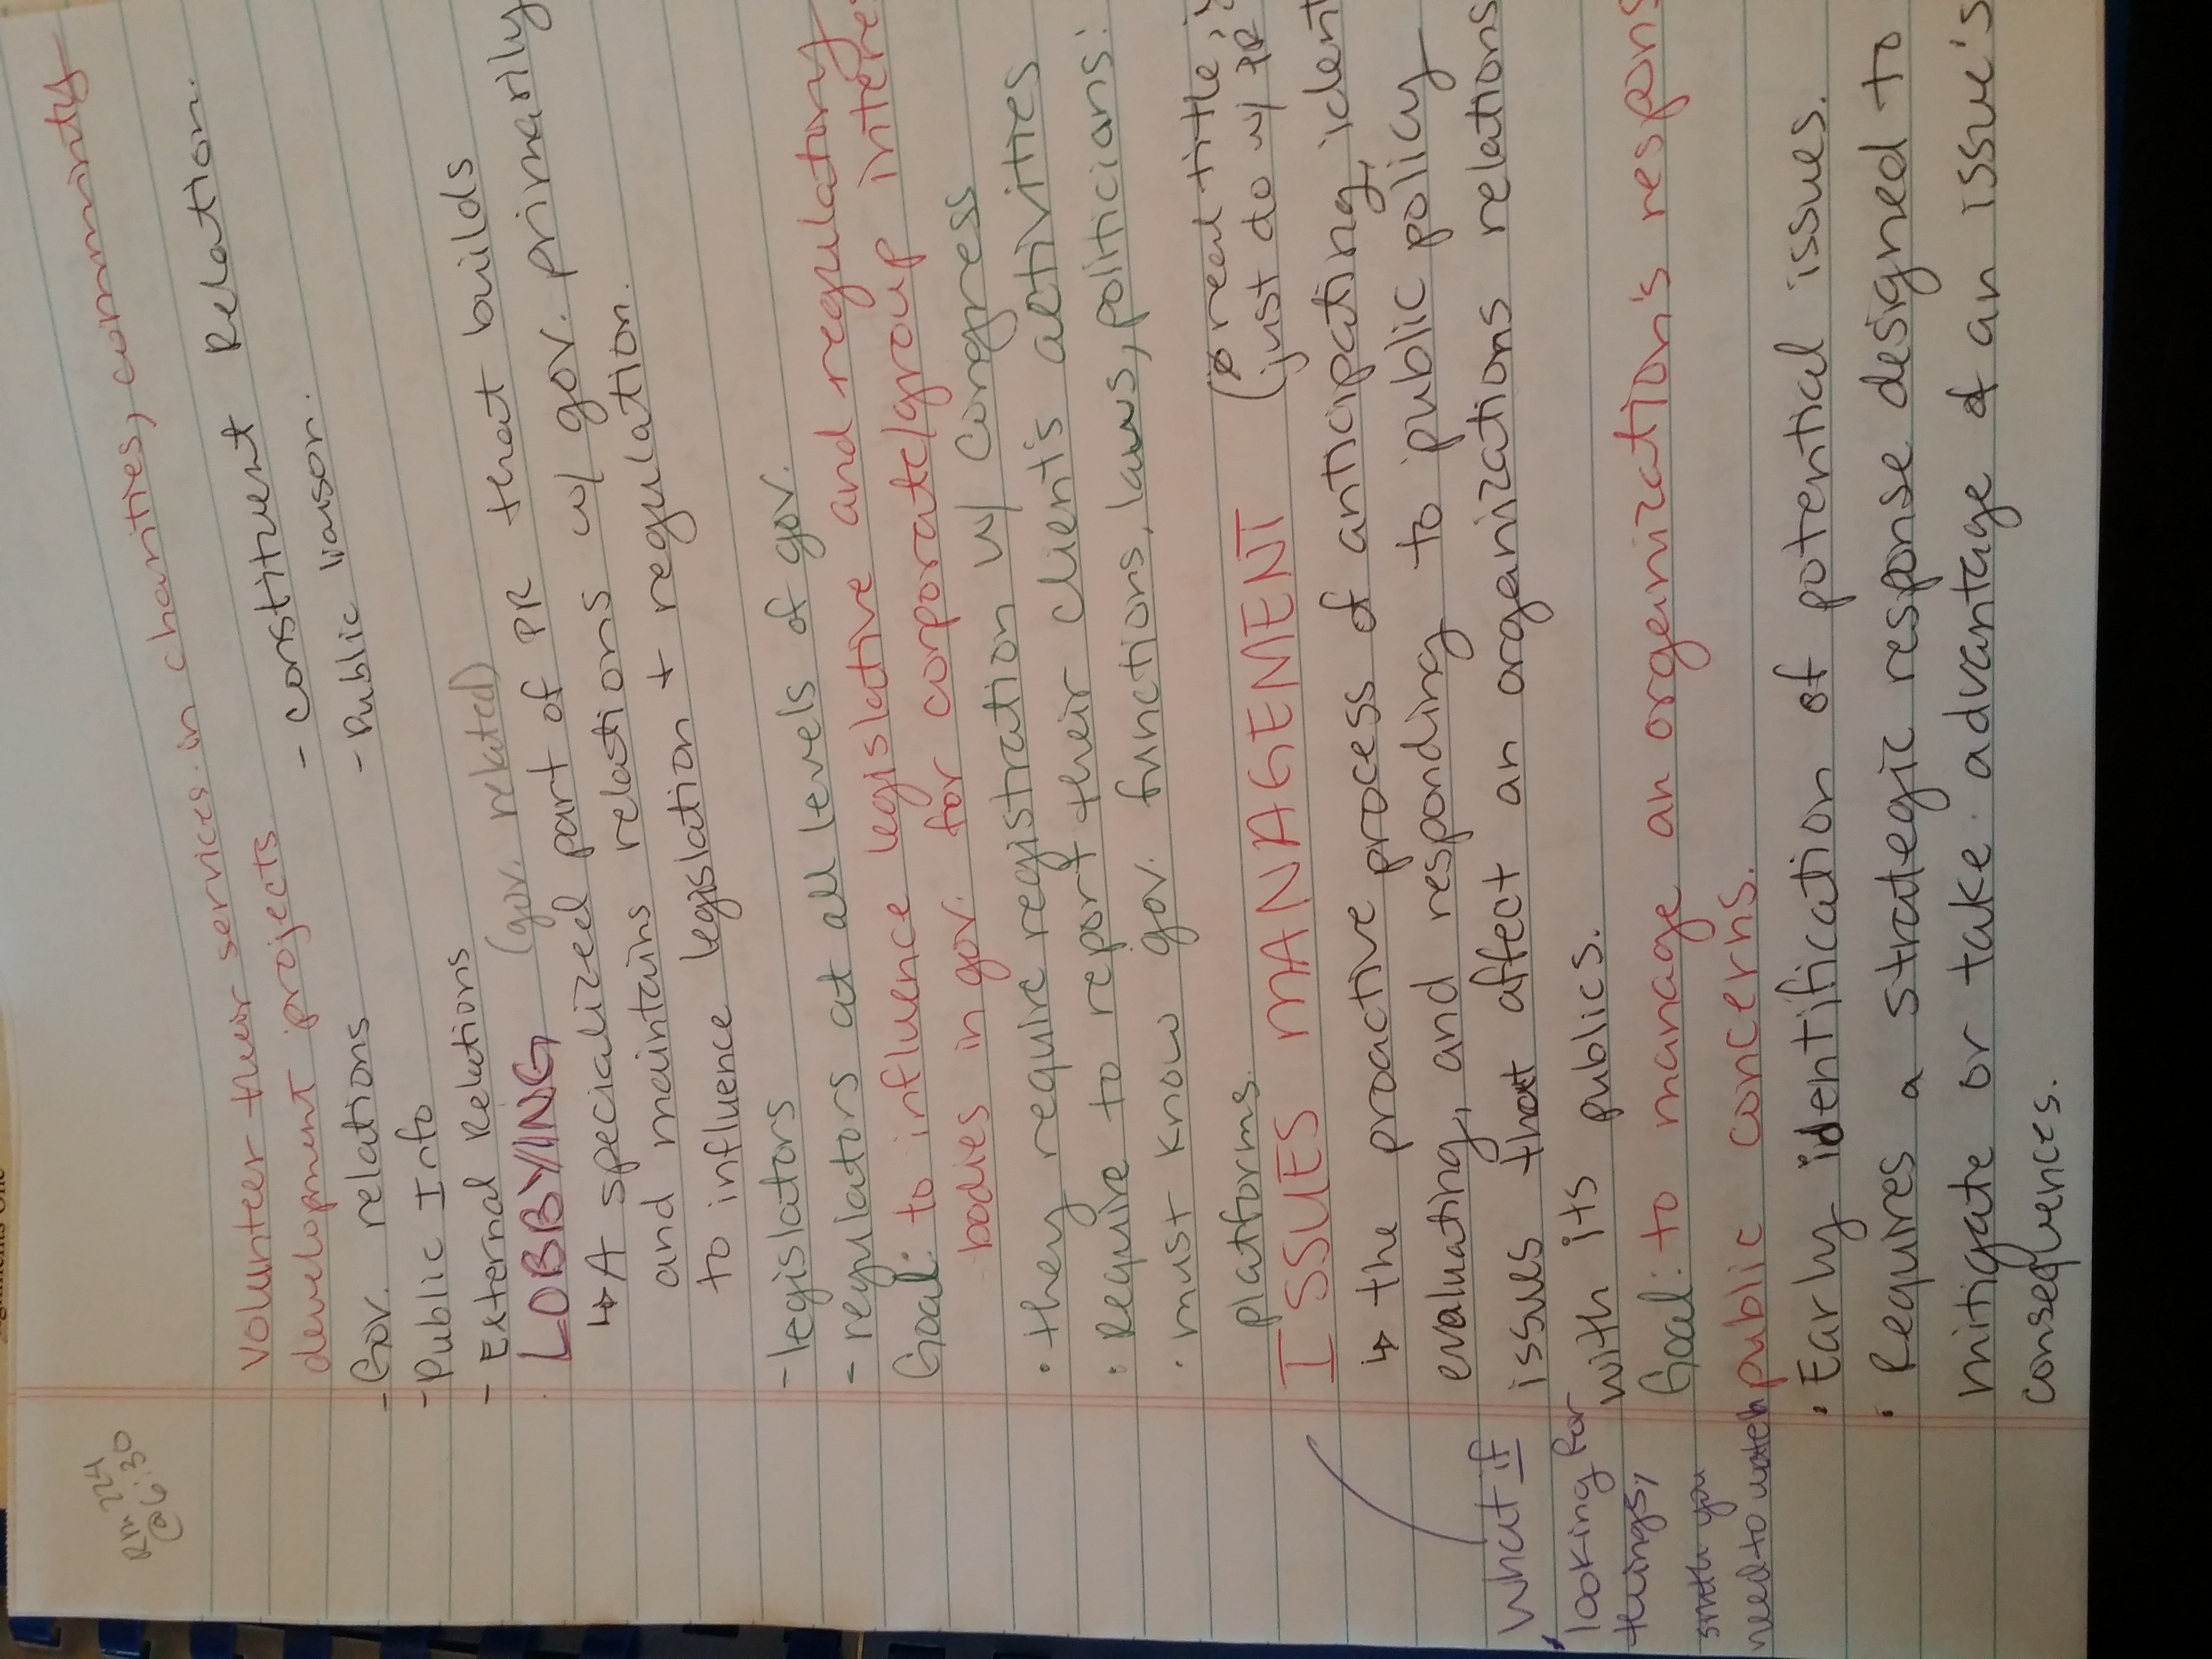 Rm 224
@ 6:30
volunteer their services in charities, community
development projects
- Gov. relations - constituent Relation.
- Public Info - Public liason.
- External Relations
LOBBYING (gov. related)
↳ A specialized part of PR that builds
and maintains relations w/ gov. primarily
to influence legislation + regulation.
- legislators
- regulators at all levels of gov.
Goal: to influence legislative and regulatory
bodies in gov. for corporate/group
• they require registration w/ congress
• Require to report their client's activities
• must know gov. functions, laws, politicians:
platforms.
ISSUES MANAGEMENT (Ø real title,
(just do w/ PR
↳ the proactive process of anticipating,
evaluating, and responding to public policy
issues that affect an organizations relations
with its publics.
Goal: to manage an organization's
public concerns.
• Early identification of potential issues.
• Requires a strategic response designed to
mitigate or take advantage of an issue's
consequences.
What if
looking for
things,
smth you
need to watch